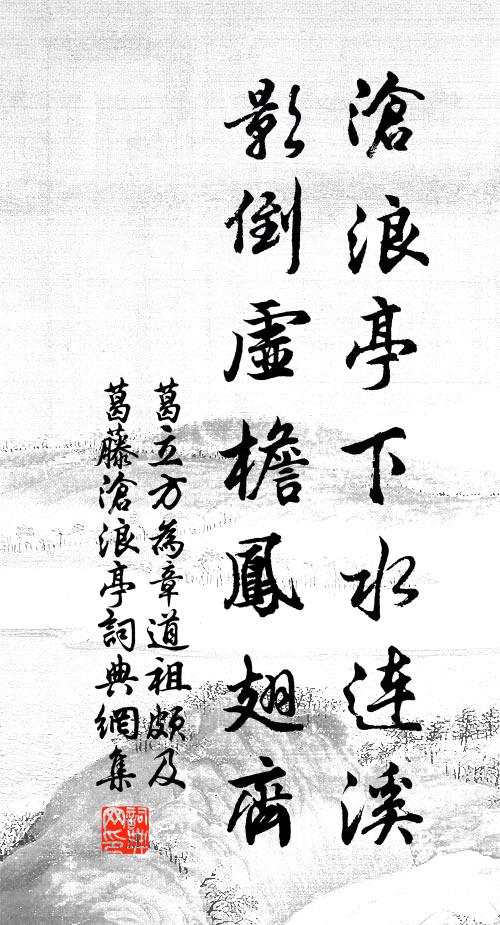 滄浪亭下水連溪
影倒虛檐鳳翅齊
葛立方為章道祖頗及
葛藤滄浪亭詞典網集